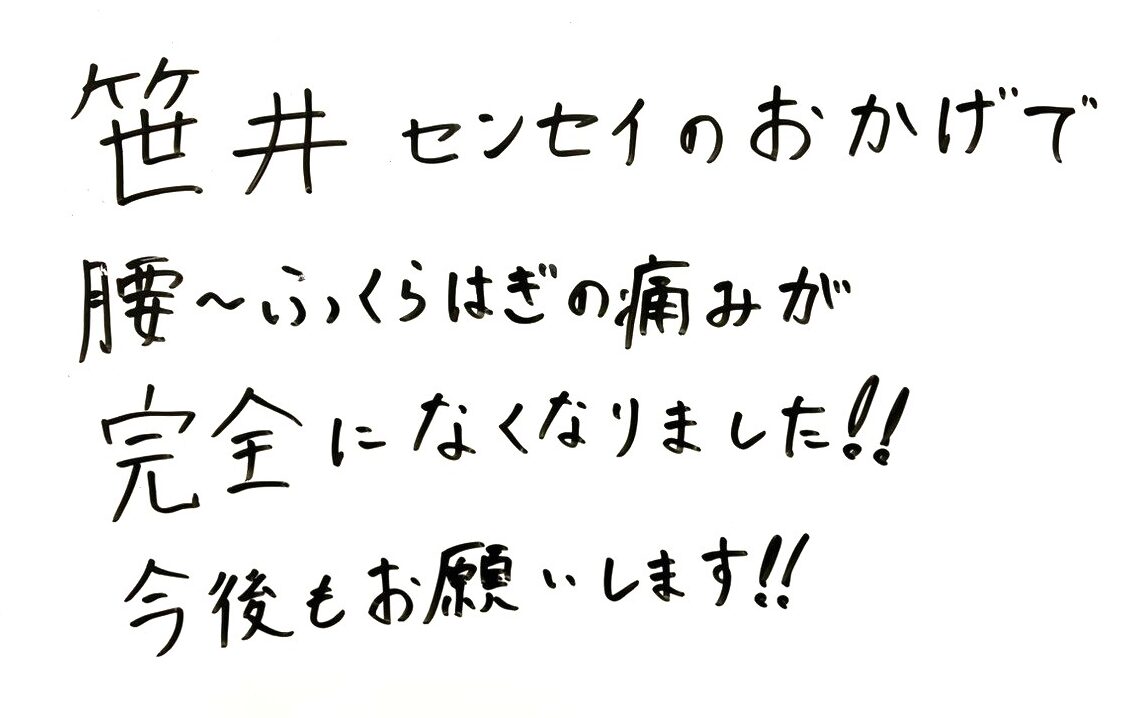 笹井センセイのおかげで
腰～ふくらはぎの痛みが
完全になくなりました!!
今後もお願いします!!